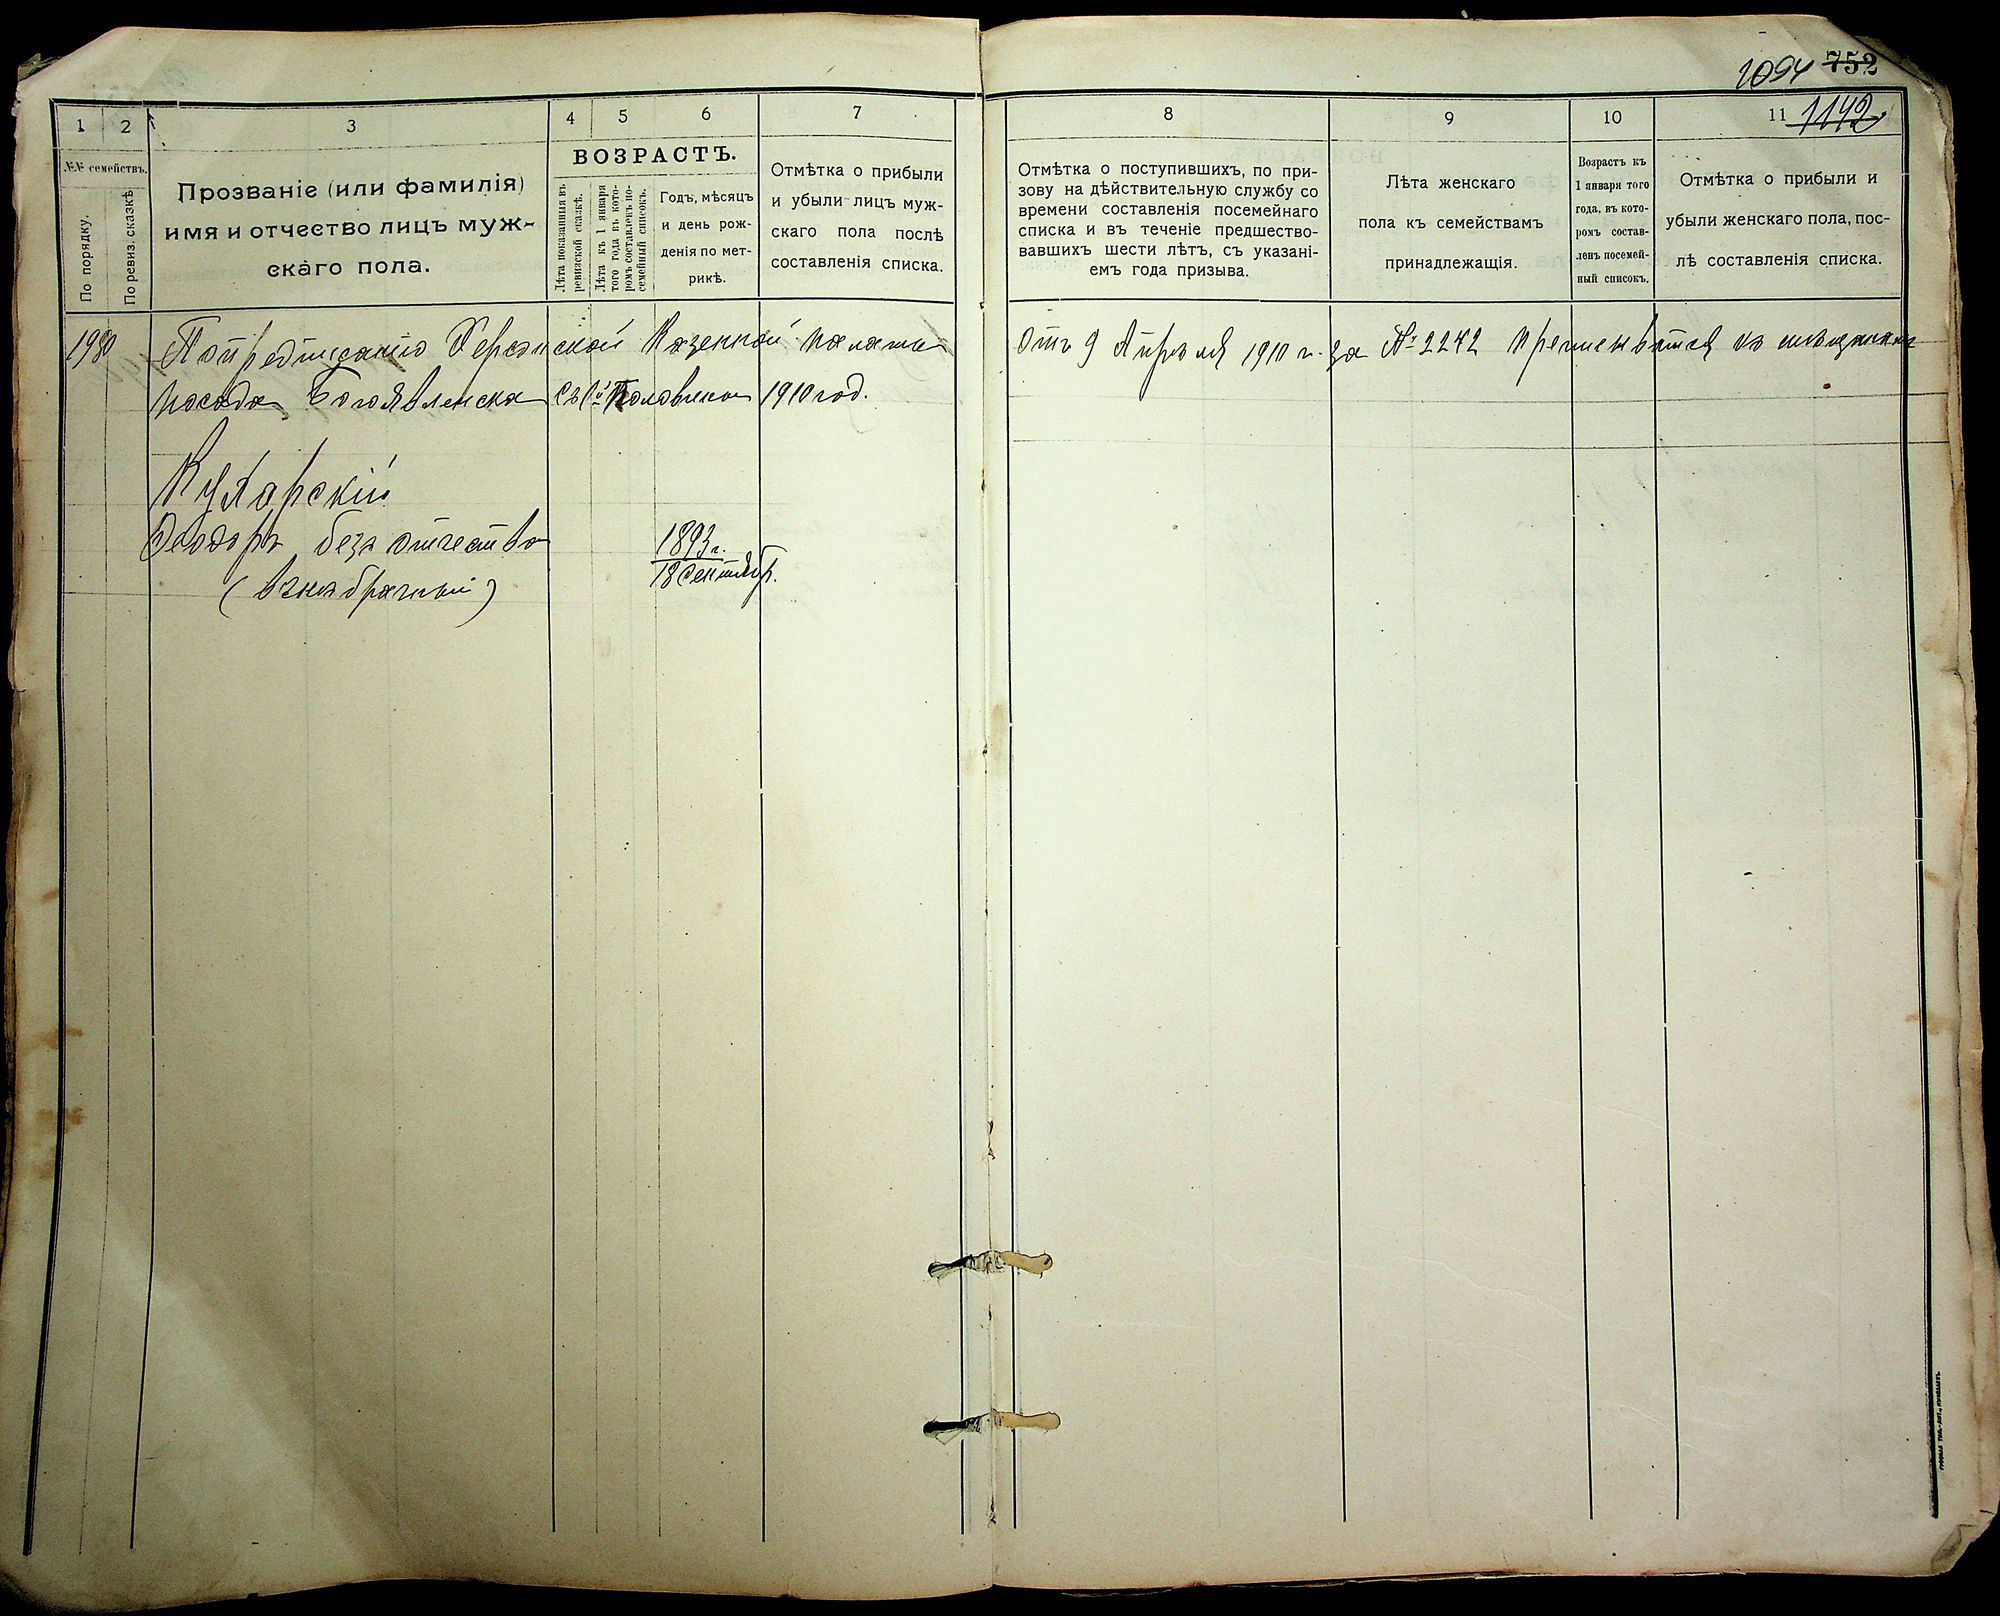 1094 752
1142
1
2
3
4
5
6
7
8
9
10
11
№№ семействъ.
По порядку.
По ревиз. сказкѣ
Прозваніе (или фамилія)
имя и отчество лицъ муж-
скаго пола.
ВОЗРАСТЪ.
Лѣта показанныя въ
ревизской сказкѣ.
Лѣта къ 1 января
того года къ кото-
ромъ составленъ по-
семейный списокъ.
Годъ, мѣсяцъ
и день рож-
денія по мет-
рикѣ.
Отмѣтка о прибыли
и убыли лицъ муж-
скаго пола послѣ
составленія списка.
Отмѣтка о поступившихъ, по при-
зову на дѣйствительную службу со
времени составленія посемейнаго
списка и въ теченіе предшество-
вавшихъ шести лѣтъ, съ указані-
емъ года призыва.
Лѣта женскаго
пола къ семействамъ
принадлежащія.
Возрастъ къ
1 января того
года, въ кото-
ромъ состав-
ленъ посемей-
ный списокъ.
Отмѣтка о прибыли и
убыли женскаго пола, пос-
лѣ составленія списка.
1980 По предписанію Херсонской Казенной палаты отъ 9 Апрѣля 1910 г. за № 2242 къ мѣщанамъ
посада Богоявленска съ 1й Половины 1910 год.
Кухарскій
Ѳеодоръ безъ отчества
(внѣбрачный)
1893 г.
18 Сентябр.